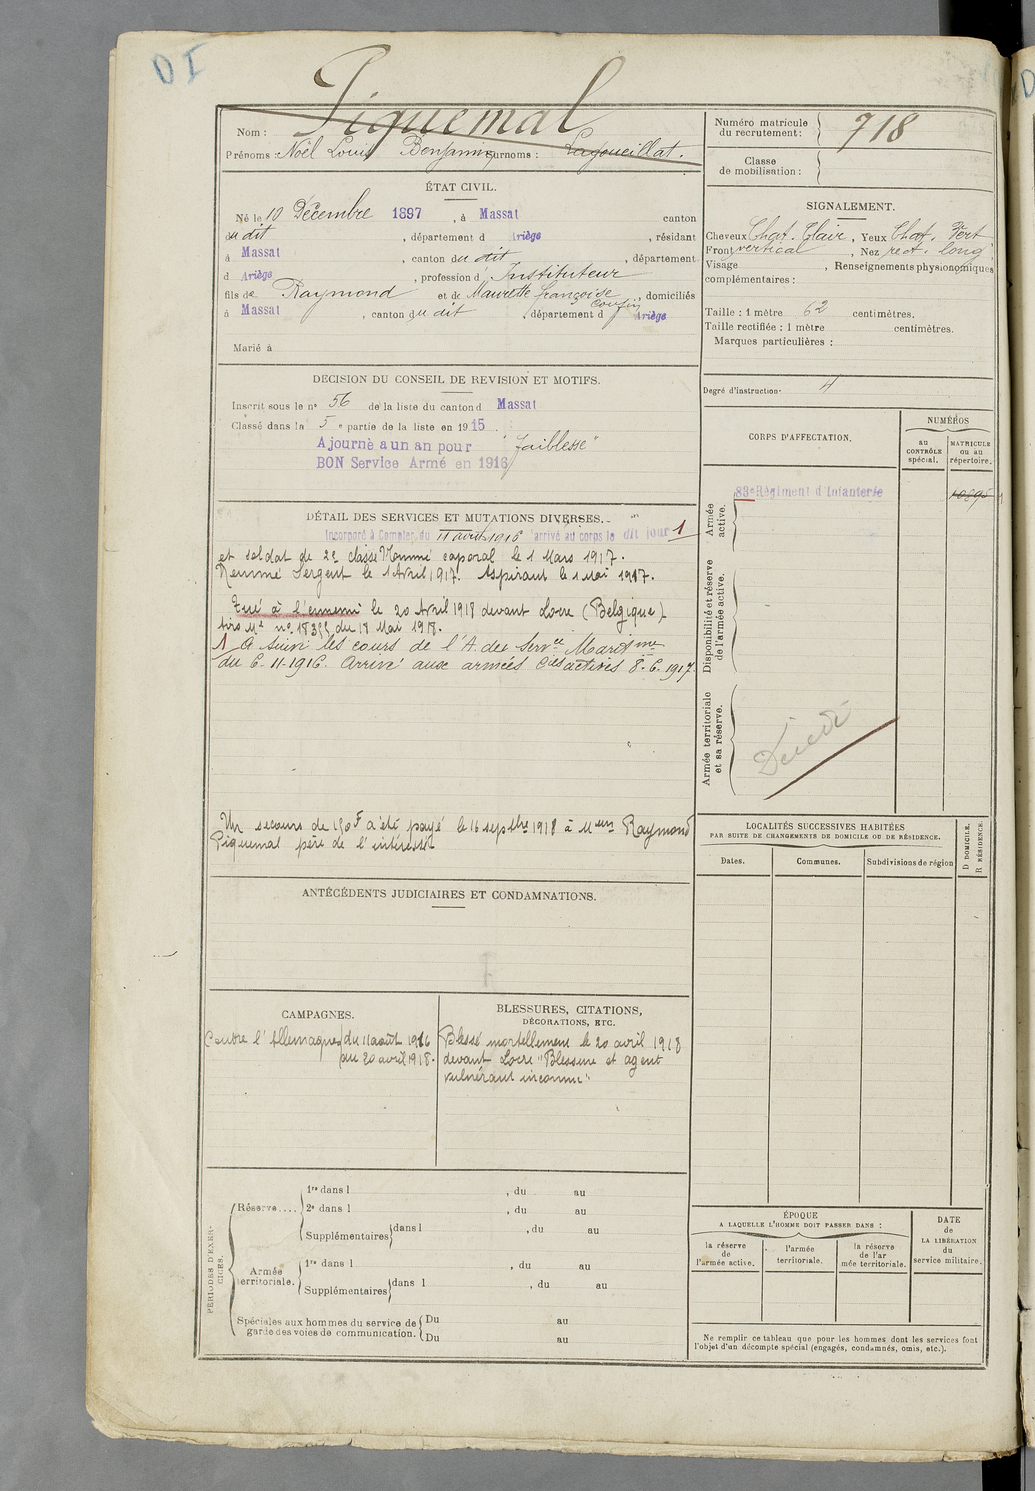 DI
Piquemal
Nom :
Prénoms : Noël Louis Benjamin Surnoms : Lagoueillat.
Numéro matricule du recrutement : 718
Classe de mobilisation :
ÉTAT CIVIL.
Né le 10 Décembre 1897, à Massat canton
du dit, département d Ariège, résidant
à Massat, canton du dit, département
d Ariège, profession d' Instituteur
fils de Raymond et de Maurette françoise, domiciliés
à Massat, canton du dit, département d Ariège
Marié à
SIGNALEMENT.
Cheveux Chat. Clair, Yeux Chat. Vert
Front vertical, Nez rect. long
Visage , Renseignements physionomiques
complémentaires :
Taille : 1 mètre 62 centimètres.
Taille rectifiée : 1 mètre centimètres.
Marques particulières :
Degré d'instruction. 4
DÉCISION DU CONSEIL DE REVISION ET MOTIFS.
Inscrit sous le no 56 de la liste du canton d Massat
Classé dans la 5 e partie de la liste en 1915.
Ajourné a un an pour "faiblesse"
BON Service Armé en 1916
CORPS D'AFFECTATION.
NUMÉROS
au CONTRÔLE spécial.
MATRICULE ou au répertoire.
Armée active.
83e Régiment d'Infanterie
10895
Disponibilité et réserve de l'armée active.
Armée territoriale et sa réserve.
Décédé
DÉTAIL DES SERVICES ET MUTATIONS DIVERSES.
Incorporé à Compter du 11 août 1916 arrivé au corps le dit jour 1
et soldat de 2e classe Nommé caporal le 1 Mars 1917.
Nommé Sergent le 1 Avril 1917. Aspirant le 1 Mai 1917.
Tué à l'ennemi le 20 Avril 1918 devant Locre (Belgique)
du 18 Mai 1918.
1 A suivi les cours de l'A. des
du 6-11-1916. Arrivé aux armées 8-6-1917.
Un secours de 150 F a été payé le 16 septbre 1918 à Raymond
Piquemal père de l'intéressé
LOCALITÉS SUCCESSIVES HABITÉES
PAR SUITE DE CHANGEMENTS DE DOMICILE OU DE RÉSIDENCE.
Dates.
Communes.
Subdivisions de région
D DOMICILE.
R RÉSIDENCE.
ANTÉCÉDENTS JUDICIAIRES ET CONDAMNATIONS.
CAMPAGNES.
Contre l'Allemagne du 11 août 1916
au 20 avril 1918.
BLESSURES, CITATIONS,
DÉCORATIONS, ETC.
Blessé mortellement le 20 avril 1918
devant Locre "Blessure et agent
vulnérant inconnu"
PÉRIODES D'EXERCICES.
Réserve....
1re dans l , du au
2e dans l , du au
Supplémentaires dans l , du au
Armée territoriale.
1re dans l , du au
Supplémentaires dans l , du au
Spéciales aux hommes du service de garde des voies de communication.
Du au
Du au
ÉPOQUE
A LAQUELLE L'HOMME DOIT PASSER DANS :
la réserve de l'armée active.
l'armée territoriale.
la réserve de l'ar mée territoriale.
DATE de LA LIBÉRATION du service militaire.
Ne remplir ce tableau que pour les hommes dont les services font
l'objet d'un décompte spécial (engagés, condamnés, omis, etc.).